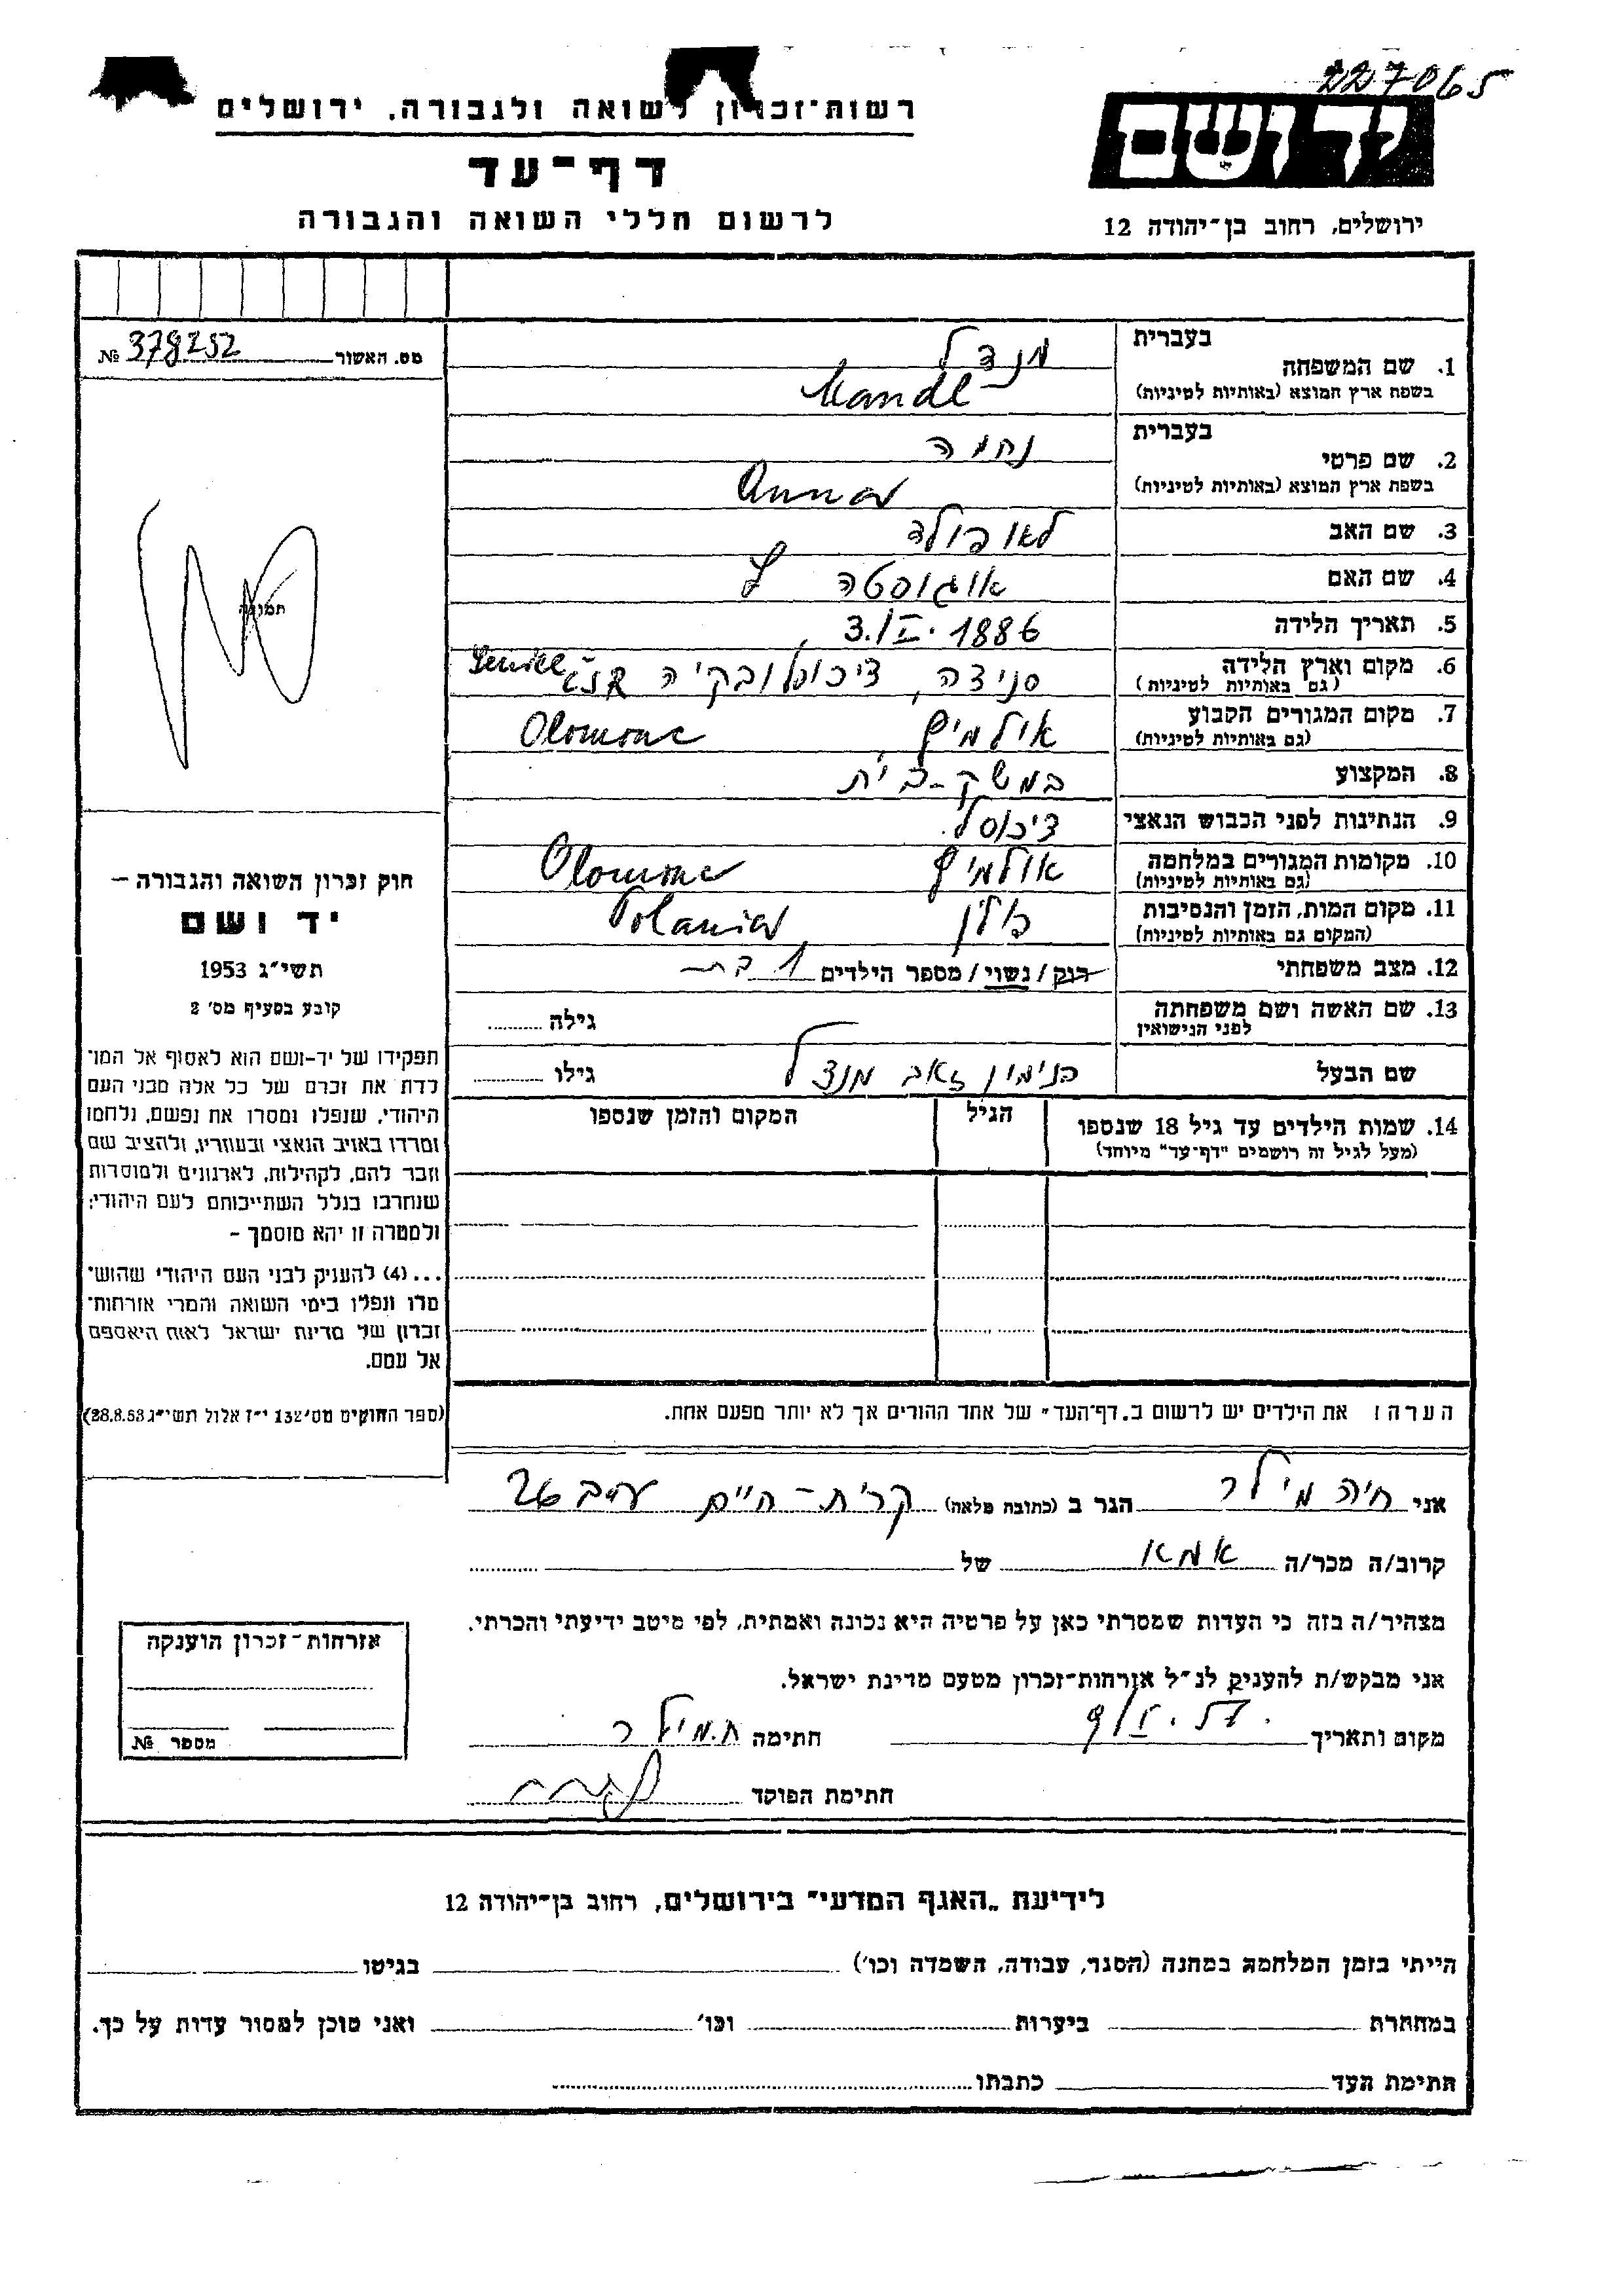 227065
רשות־זכרון לשואה ולגבורה, ירושלים
יד ושם
דף־עד
לרשום חללי השואה והגבורה
ירושלים, רחוב בן־יהודה 12
מס. האשור № 378252
בעברית
1. שם המשפחה מנדל
(בשפת ארץ המוצא (באותיות לטיניות Mandl
בעברית
2. שם פרטי נחמה
(בשפת ארץ המוצא (באותיות לטיניות Anna
3. שם האב לאופולד
4. שם האם אוגוסטה
5. תאריך הלידה 3./I. 1886
6. מקום וארץ הלידה סניצה, ציכוסלובקיה ČSR
(גם באותיות לטיניות)
7. מקום המגורים הקבוע אולמיץ Olomouc
(גם באותיות לטיניות)
8. המקצוע במשק-בית
9. הנתינות לפני הכבוש הנאצי ציכוסל.
10. מקומות המגורים במלחמה אולמיץ Olomouc
(גם באותיות לטיניות)
11. מקום המות, הזמן והנסיבות פולין Polania
(המקום גם באותיות לטיניות)
12. מצב משפחתי רווק/נשוי/מספר הילדים 1 בת
13. שם האשה ושם משפחתה לפני הנישואין גילה
שם הבעל בנימין זאב מנדל גילו
14. שמות הילדים עד גיל 18 שנספו הגיל המקום והזמן שנספו
(מעל לגיל זה רושמים "דף־עד" מיוחד)
תמונה
חוק זכרון השואה והגבורה –
יד ושם
תשי"ג 1953
קובע בסעיף מס' 2
תפקידו של יד-ושם הוא לאסוף אל המו־
לדת את זכרם של כל אלה מבני העם
היהודי, שנפלו ומסרו את נפשם, נלחמו
ומרדו באויב הנאצי ובעוזריו, ולהציב שם
וזכר להם, לקהילות, לארגונים ולמוסדות
שנחרבו בגלל השתייכותם לעם היהודי;
ולמטרה זו יהא מוסמך –
...(4) להעניק לבני העם היהודי שהוש־
מדו ונפלו בימי השואה והמרי אזרחות־
זכרון של מדינת ישראל לאות היאספם
אל עמם.
(ספר החוקים מס' 132 י"ז אלול תשי"ג 28.8.53)
הערה: את הילדים יש לרשום ב„דף־העד" של אחד ההורים אך לא יותר מפעם אחת.
אני חיה מילר הגר ב (כתובת מלאה) קרית-חיים
קרוב/ה מכר/ה אמא של
מצהיר/ה בזה כי העדות שמסרתי כאן על פרטיה היא נכונה ואמתית, לפי מיטב ידיעתי והכרתי.
אני מבקש/ת להעניק לנ"ל אזרחות־זכרון מטעם מדינת ישראל.
מקום ותאריך חתימה ח. מילר
חתימת הפוקד
אזרחות־זכרון הוענקה
מספר №
לידיעת „האגף המדעי" בירושלים, רחוב בן־יהודה 12
הייתי בזמן המלחמה במחנה (הסגר, עבודה, השמדה וכו') בגיטו
במחתרת ביערות וכו' ואני מוכן למסור עדות על כך.
חתימת העד כתבתו